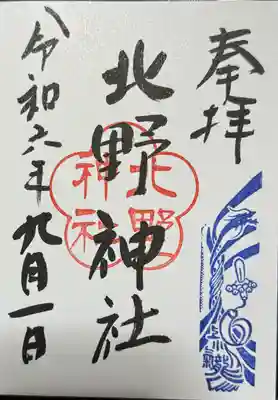 奉拝
北野神社
北野
神社
令和六年九月一日